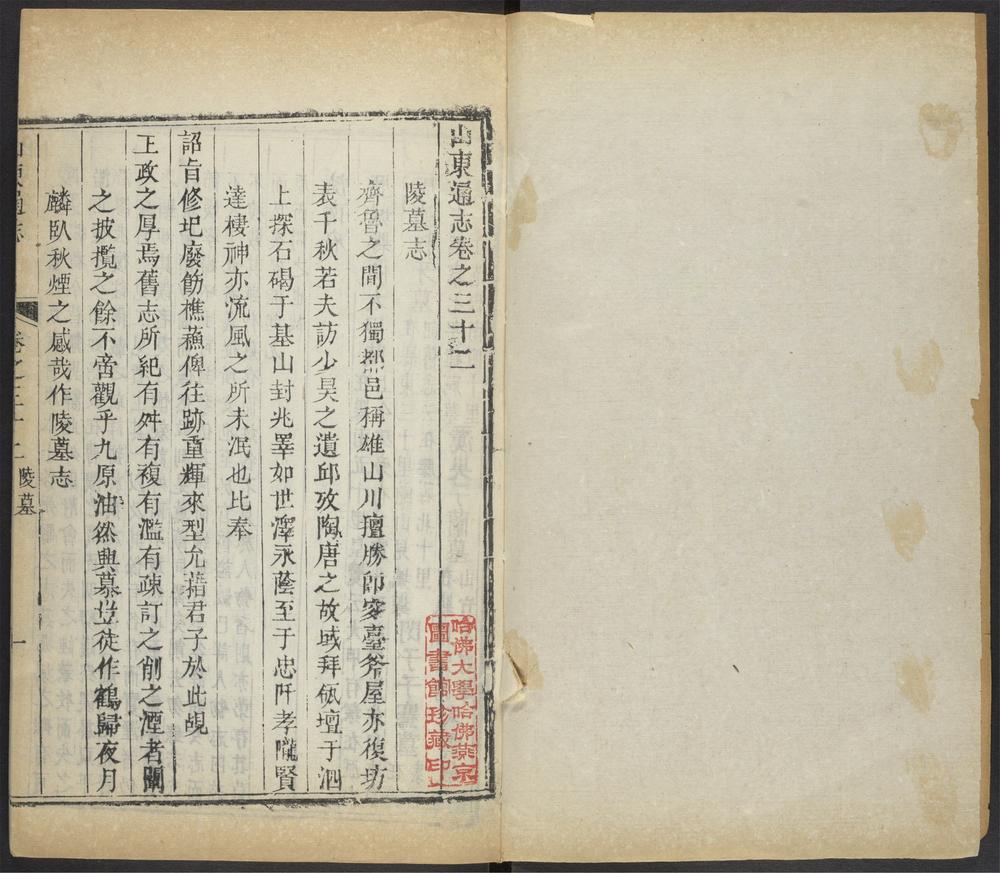 山東通志卷之三十二
陵墓志
齊魯之間不獨都邑稱雄山川擅勝即穸臺斧屋亦復坊
表千秋若夫訪少昊之遺邱攷陶唐之故域拜瓴壇于泗
上探石碣于基山封兆睪如世澤永蔭至于忠阡孝隴賢
達棲神亦流風之所未泯也比奉
詔旨修圯廢飭樵蘓俾往跡重輝來型允藉君子於此覘
王政之厚焉舊志所紀有舛有複有濫有疎訂之削之湮者闡
之披攬之餘不啻觀乎九原油然興慕豈徒作鶴歸夜月
麟臥秋煙之感哉作陵墓志
山東通志
卷之三十二
陵墓
一
哈佛大學哈佛燕京
圖書館珍藏印